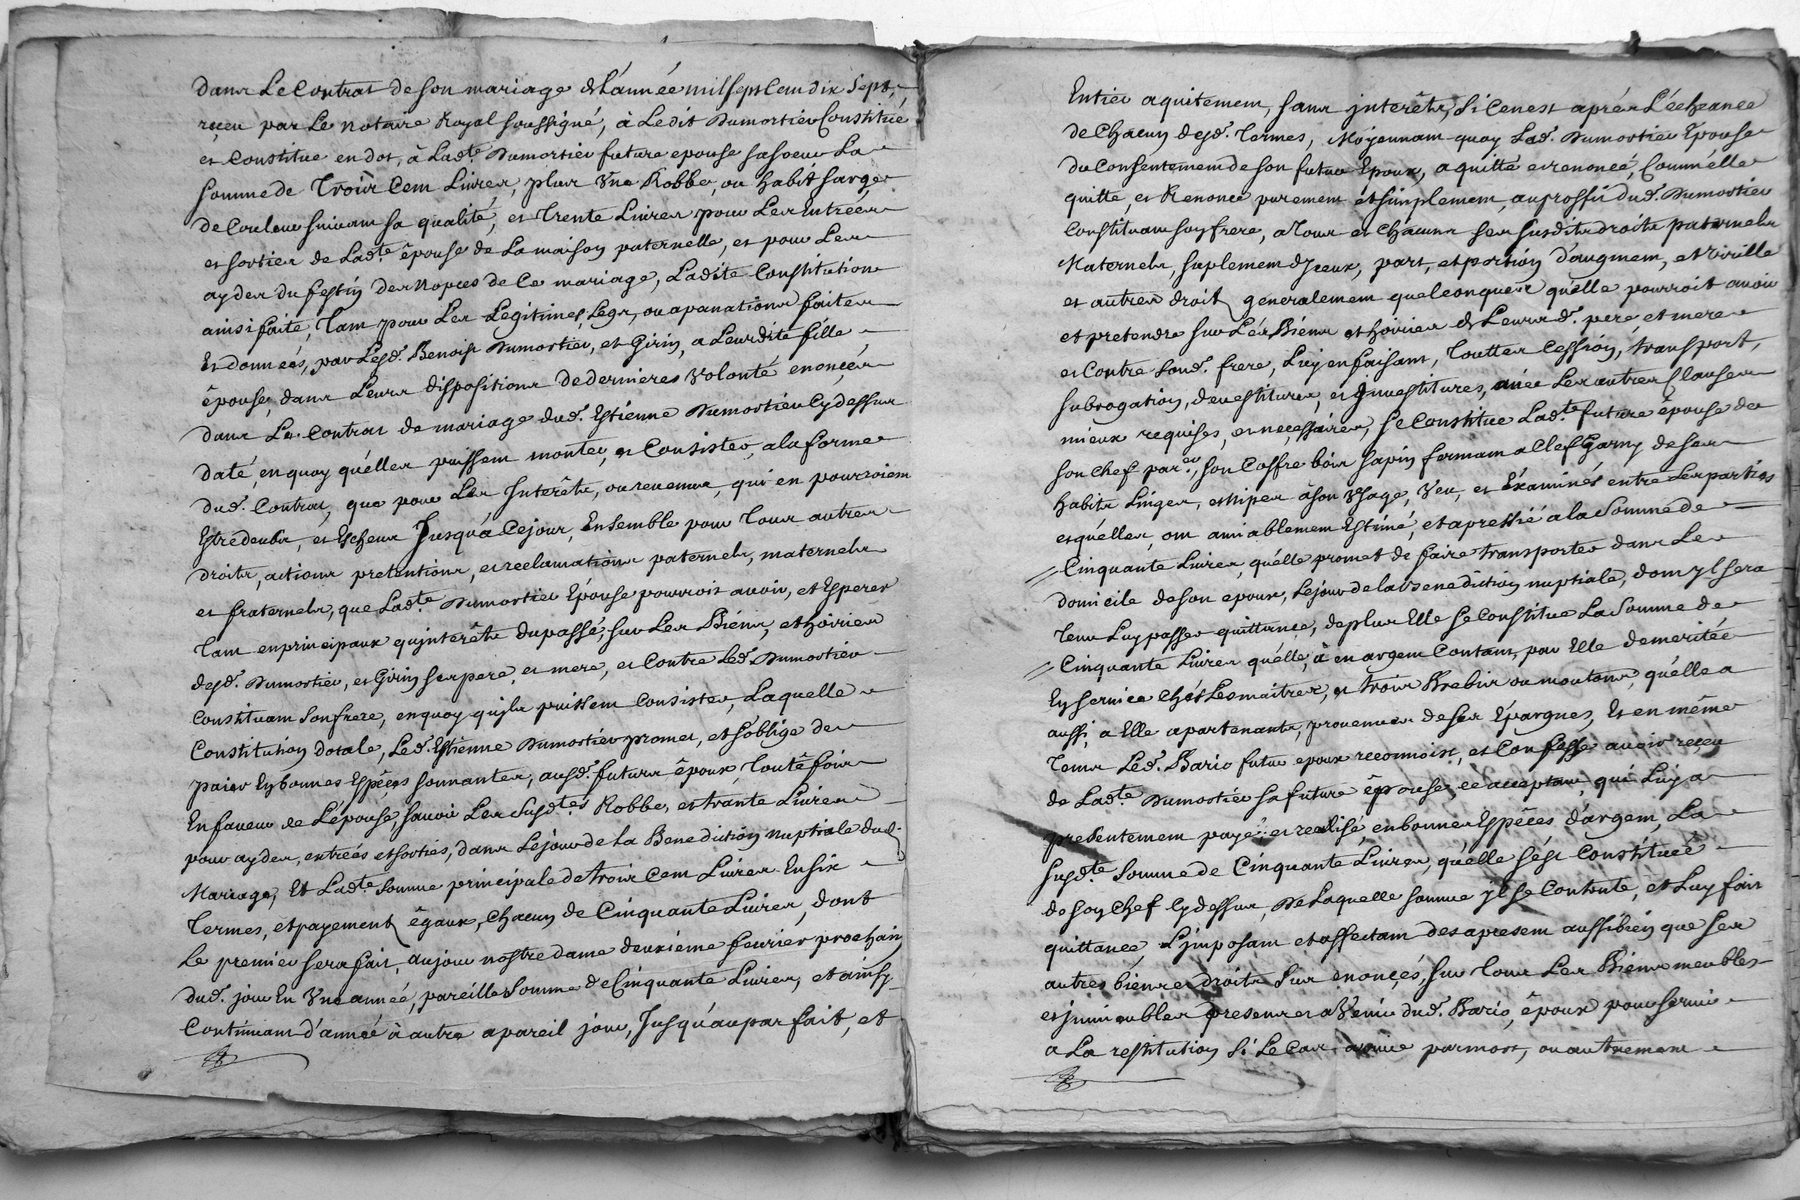 dans Le Contrat de son mariage de L'année mil sept Cens dix sept,
reçeu par Le notaire Royal soussigné, à Ledit Dumortier Constitué
et Constitue en dot, à Lad.te Dumortier future epouse sa soeur La
somme de Trois Cem Livres, plus Une Robbe, ou habit sarge
de Couleur suivant sa qualité, et Trente Livres pour Les Entrées
et sorties de Lad.te épouse de La maison paternelle, et pour Les
aydes du festin des Nopces de Ce mariage, Ladite Constitution
ainsi faite, Tant pour Les Legitimes, Legs, ou apanations faites
Et donnees, par Lesd. Benoist Dumortier, et Girin, a Leurdite fille,
épouse, dans Leurs dispositions de dernieres Volonté enonçées
dans Le Contrat de mariage dud. Estienne Dumortier Cy dessus
daté, en quoy qu'elles puissent monter, et Consister, a la forme
dud. Contrat, que pour Les Interêts, ou revenus, qui en pourroient
Estre deubs, et Escheus Jusqu'à Cejour, Ensemble pour Tous autres
droits, actions pretentions, et reclamations paternels, maternels
et fraternels, que Lad.te Dumortier Epouse pourroit avoir, et Esperer
Tant en principaux qu'interêts du passé, sur Les Biens, et hoiries
desd. Dumortier, et Girin ses pere, et mere, et Contre Led. Dumortier
Constituant son frere, en quoy qu'ils puissent Consister, Laquelle
Constitution dotale, Led. Estienne Dumortier promet, et s'oblige de
paier En bonnes Espêces sonnantes, ausd. futurs époux, Toutêfois
En faveur de L'epouse, savoir Les Susd.tes Robbe, et trante Livres
pour aydes, entreés et sorties, dans Le jour de La Benediction nuptiale dud.
Mariage, Et Lad.te somme principale de trois Cent Livres En six
Termes, et payements égaux, Chacun de Cinquante Livres, dont
Le premier sera fait, au jour nostre dame deuxième fevrier prochain
dud. jour En Une année, pareille Somme de Cinquante Livres, et ainsy
Continuant d'année à autre a pareil jour, Jusqu'au parfait, et
Entier aquitement, sans interêts, si Cenest aprés L'écheance
de Chacun desd. Termes, Moÿennant quoy Lad. Dumortier Epouse
du Consentement de son futur Epoux, a quitté et renoncé, Comm'elle
quitte, et Renonce purement et simplement, au proffit dud. Dumortier
Constituant son frere, a Tous et Chacuns ses susdits droits paternels
Maternels, suplement d'Jceux, part, et portion d'augment, et Virille
et autres droits generalement quelconques qu'elle pourroit avoir
et pretendre sur Les Biens et hoiries de Leursd. pere et mere
et Contre Sond. frere, Luy en faisant, Touttes Cession, transport,
subrogation, devestitures, et Jnvestitures, avec Les autres Clauses
mieux requises, et necessaires, se Constitue Lad.te future épouse de
son chef par.er, son Coffre bois sapin fermant a Clef Garny de ses
habits Linges, et nipes à son Usage, Veu, et Examinés entre Les parties
et qu'elles ont amiablement Estimé, et apretié a la Somme de
Cinquante Livres, qu'elle promet de faire transporter dans Le
domicile de son epoux, Le jour de la benediction nuptiale, dont yl sera
Tenu Luy passer quittance, de plus Elle se Constitue La Somme de
Cinquante Livres qu'elle, à en argent Contant, par Elle demeritée
En service Chés Les maitres, et trois Brebis ou moutons, qu'elle a
aussi, a Elle apartenants, provenus de ses Epargnes, Et en même
Tems Led. Bario futur epoux reconnoist, et Confesse avoir reçeu
de Lad.te Dumortier sa future épouse, ce acceptant, qui Luy a
presentement payé et realisé, en bonnes Espêces d'argent, La
susd.te Somme de Cinquante Livres, qu'elle s'est Constituée
de son Chef Cy dessus, De Laquelle somme yl se Contente, et Luy fait
quittance L'jmposant et affectant des apresent aussibien que ses
autres biens et droits sus enonçés, sur Tous Les Biens meubles
et jmmeubles presens et a Venir dud. Bario, époux pour servir
a La restitution si Le Cas arrive par mort, ou autrement